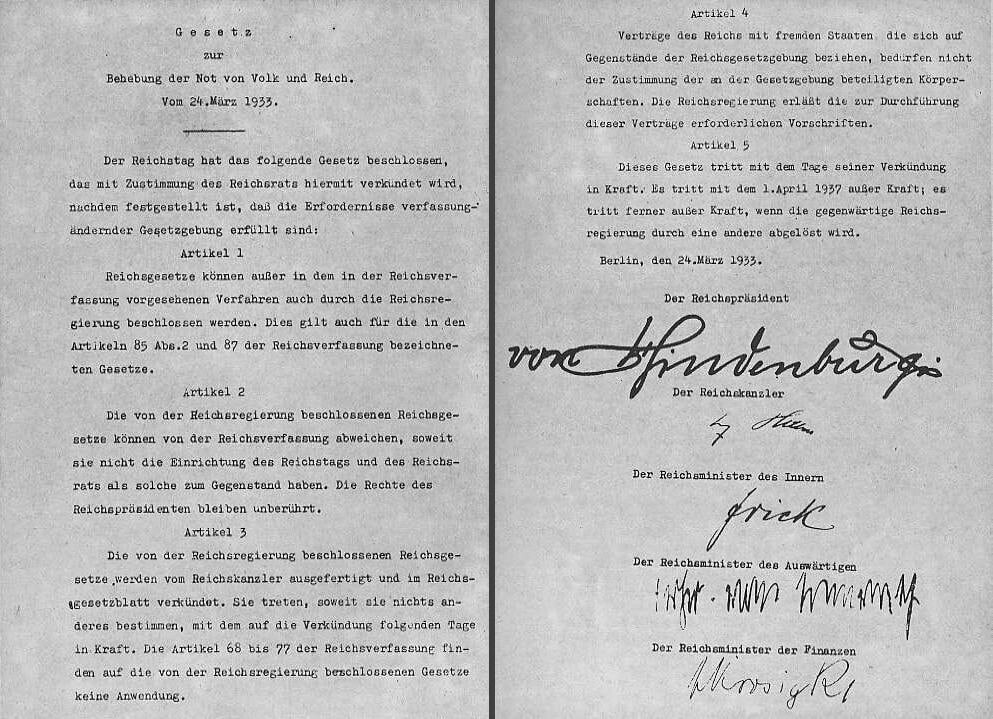 Gesetz
zur
Behebung der Not von Volk und Reich.
Vom 24.März 1933.
Der Reichstag hat das folgende Gesetz beschlossen,
das mit Zustimmung des Reichsrats hiermit verkündet wird,
nachdem festgestellt ist, daß die Erfordernisse verfassung-
ändernder Gesetzgebung erfüllt sind:
Artikel 1
Reichsgesetze können außer in dem in der Reichsver-
fassung vorgesehenen Verfahren auch durch die Reichsre-
gierung beschlossen werden. Dies gilt auch für die in den
Artikeln 85 Abs.2 und 87 der Reichsverfassung bezeichne-
ten Gesetze.
Artikel 2
Die von der Reichsregierung beschlossenen Reichsge-
setze können von der Reichsverfassung abweichen, soweit
sie nicht die Einrichtung des Reichstags und des Reichs-
rats als solche zum Gegenstand haben. Die Rechte des
Reichspräsidenten bleiben unberührt.
Artikel 3
Die von der Reichsregierung beschlossenen Reichsge-
setze werden vom Reichskanzler ausgefertigt und im Reichs-
gesetzblatt verkündet. Sie treten, soweit sie nichts an-
deres bestimmen, mit dem auf die Verkündung folgenden Tage
in Kraft. Die Artikel 68 bis 77 der Reichsverfassung fin-
den auf die von der Reichsregierung beschlossenen Gesetze
keine Anwendung.
Artikel 4
Verträge des Reichs mit fremden Staaten die sich auf
Gegenstände der Reichsgesetzgebung beziehen, bedürfen nicht
der Zustimmung der an der Gesetzgebung beteiligten Körper-
schaften. Die Reichsregierung erläßt die zur Durchführung
dieser Verträge erforderlichen Vorschriften.
Artikel 5
Dieses Gesetz tritt mit dem Tage seiner Verkündung
in Kraft. Es tritt mit dem 1.April 1937 außer Kraft; es
tritt ferner außer Kraft, wenn die gegenwärtige Reichs-
regierung durch eine andere abgelöst wird.
Berlin, den 24.März 1933.
Der Reichspräsident
von Hindenburg
Der Reichskanzler
Der Reichsminister des Innern
Frick
Der Reichsminister des Auswärtigen
Der Reichsminister der Finanzen
Krosigk